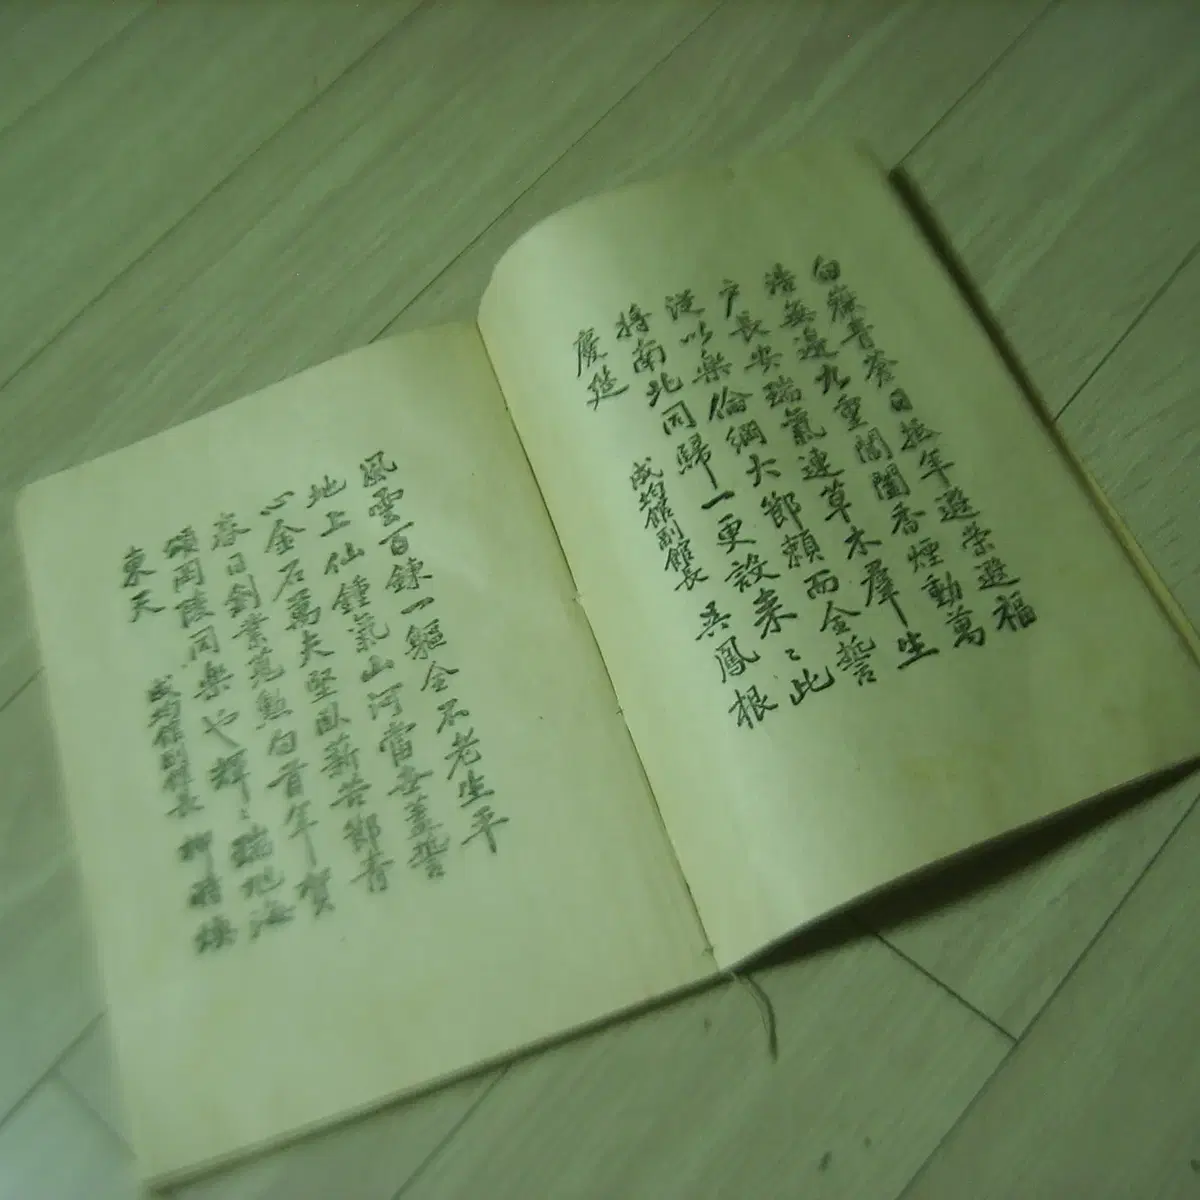 白蘇青葵日抵年遐榮遐福
浩無邊九重閶闔香煙動萬
戶長安瑞氣連草木羣生
從以樂倫綱大節賴而全誓
將南北同歸一更設來〻此
慶筵
成均館副館長 吳鳳根
風雲百鍊一軀全不老生平
地上仙鍾氣山河當世蓋誓
心金石萬夫堅臥薪苦節青
春日創業蒐勲白首年賀
頌岡陵同樂也輝〻瑞旭海
東天
成均館副館長 柳時